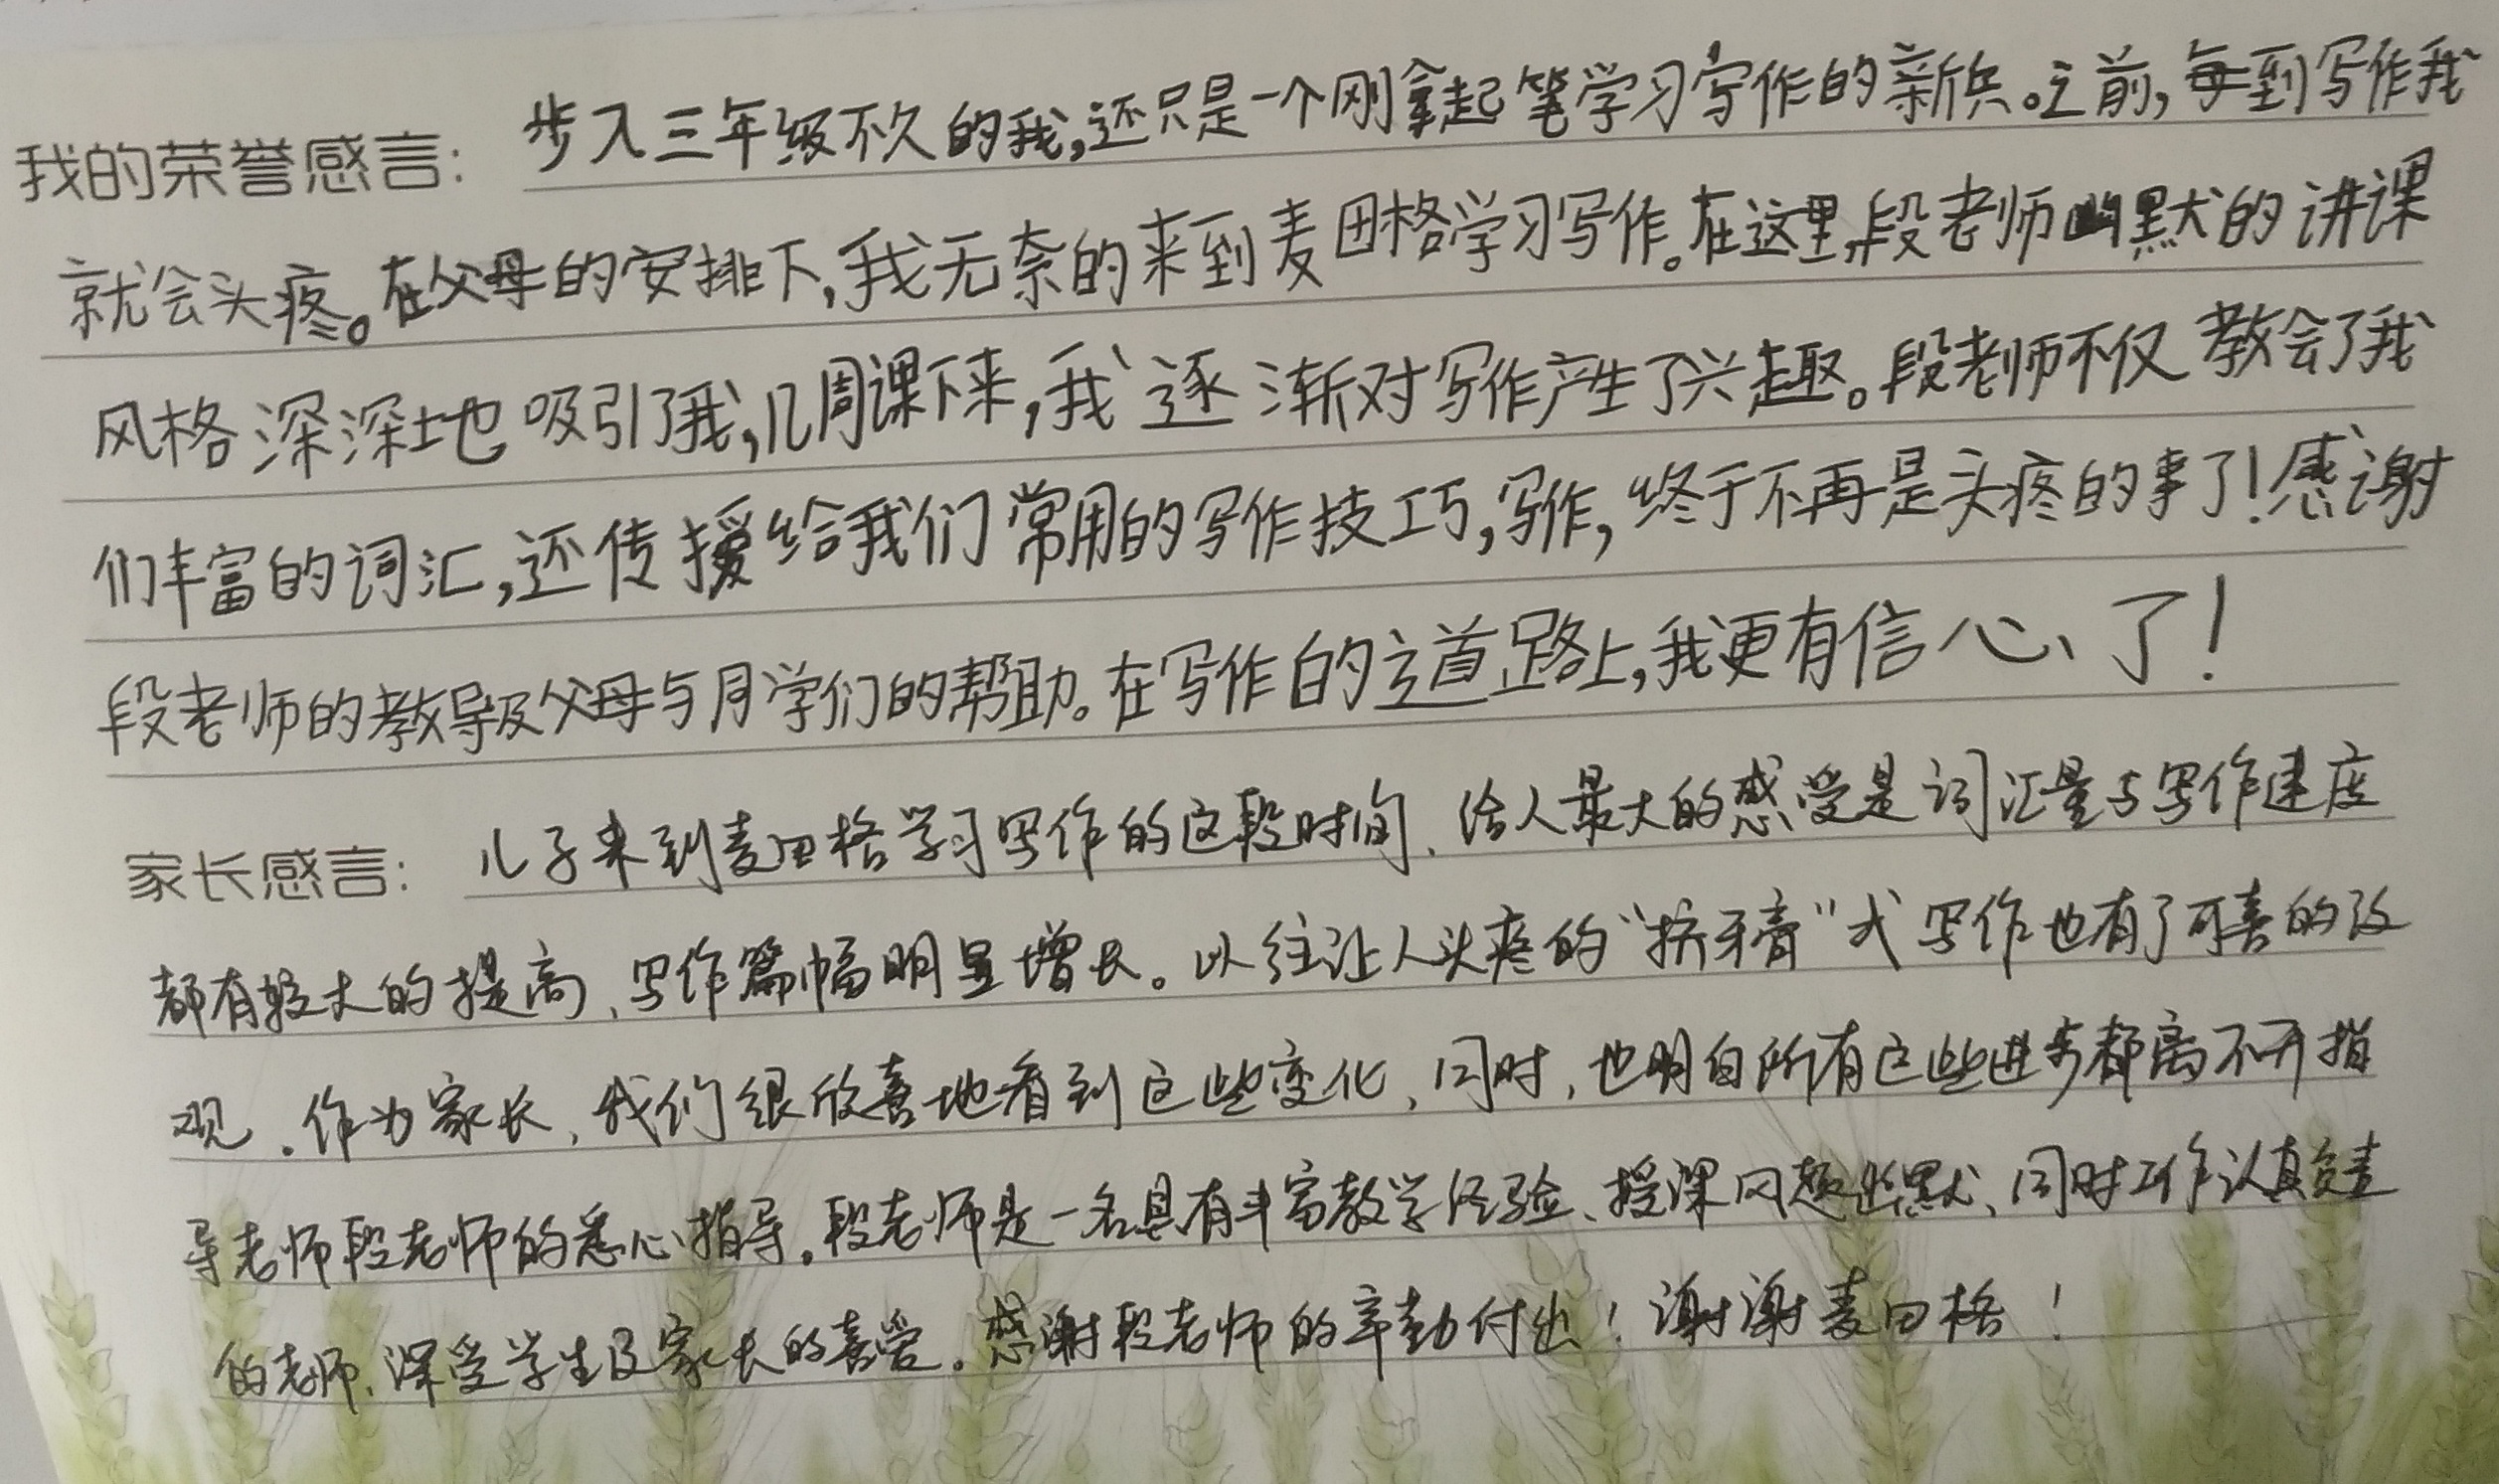 我的荣誉感言：步入三年级不久的我,还只是一个刚拿起笔学习写作的新兵。之前,每到写作我
就会头疼。在父母的安排下,我无奈的来到麦田格学习写作。在这里,段老师幽默的讲课
风格深深地吸引了我,几周课下来,我逐渐对写作产生了兴趣。段老师不仅教会了我
们丰富的词汇,还传授给我们常用的写作技巧,写作,终于不再是头疼的事了!感谢
段老师的教导及父母与同学们的帮助。在写作的道路上,我更有信心了!
家长感言：儿子来到麦田格学习写作的这段时间、给人最大的感受是词汇量与写作速度
都有较大的提高、写作篇幅明显增长。以往让人头疼的“挤牙膏”式写作也有了可喜的改
观。作为家长、我们很欣喜地看到这些变化、同时,也明白所有这些进步都离不开指
导老师段老师的悉心指导。段老师是一名具有丰富教学经验、授课风趣幽默、同时工作认真负责
的老师、深受学生及家长的喜爱。感谢段老师的辛勤付出!谢谢麦田格!